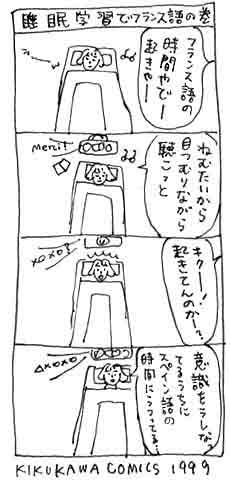 睡眠学習でフランス語の巻
フランス語の
時間やでー
起きやー
merci!
ねむたいから
目つむりながら
聴こっと
XOXO?
キクー!
起きてんのかー?
△XOXO
意識をうしなっ
てるうちに
スペイン語の
時間にうつってる…
KIKUKAWA COMICS 1999